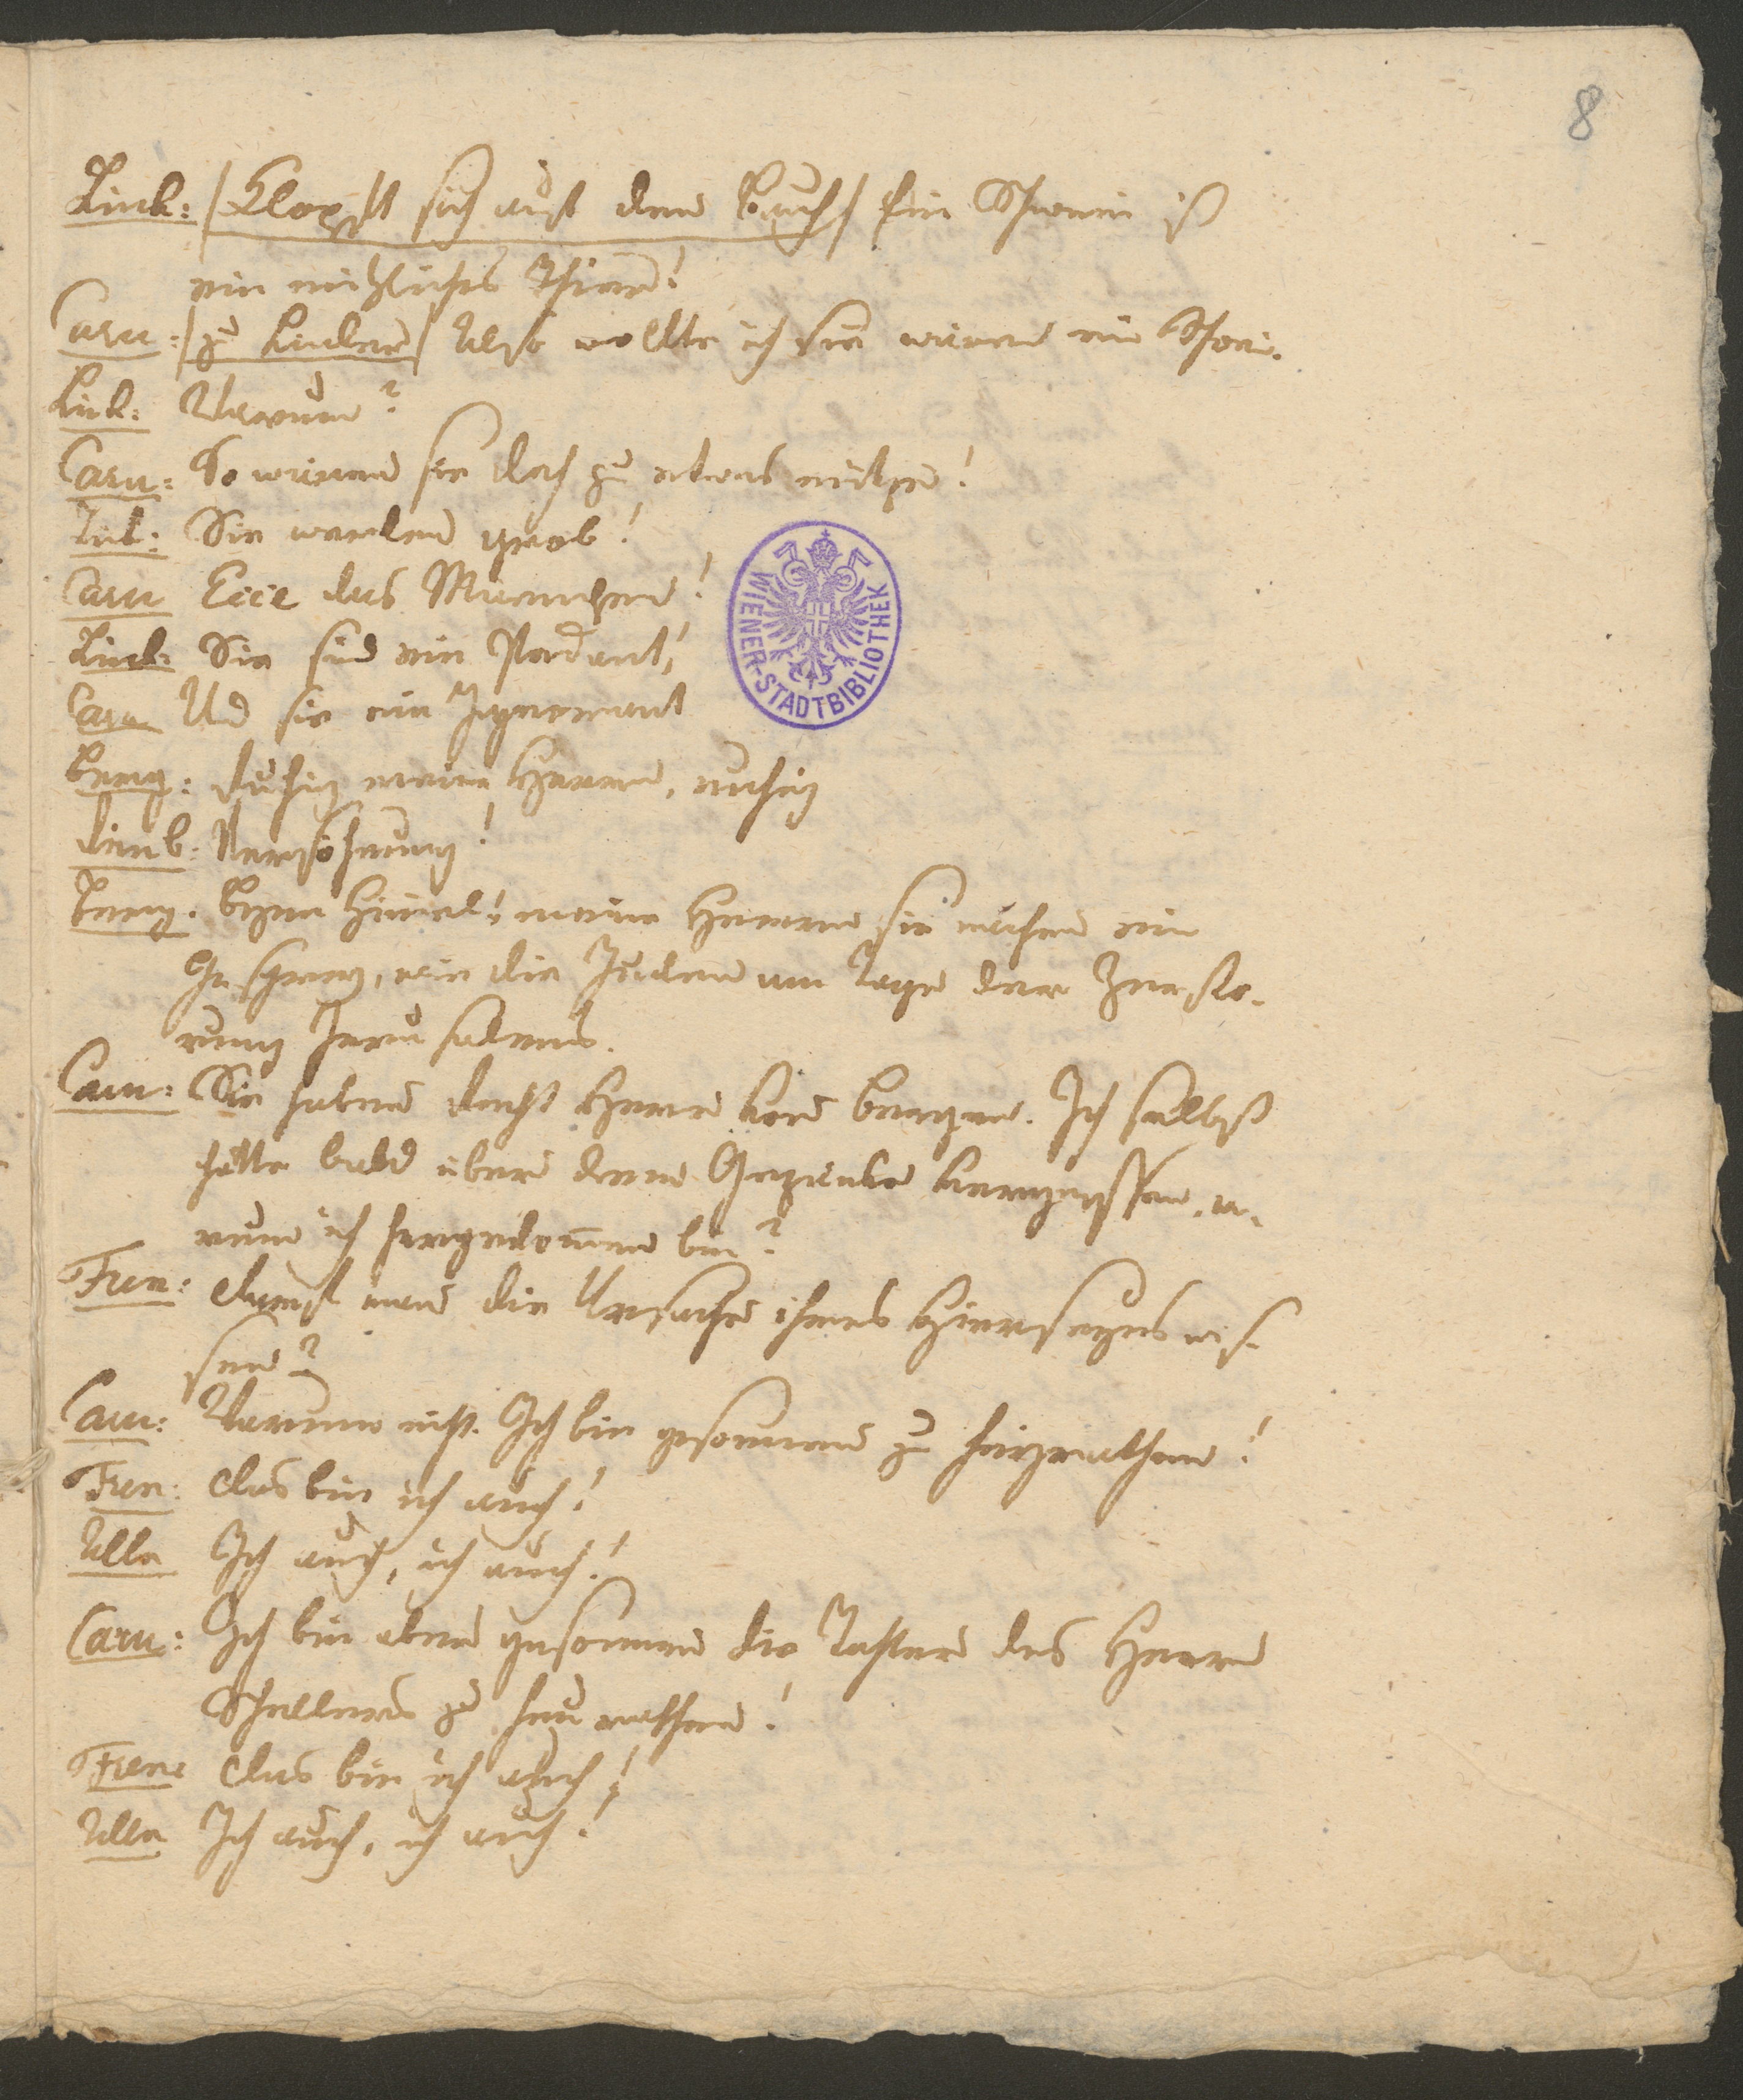 8
Link: /Klopft sich auf den Bauch/ Ein Schwein ist
ein nützliches Thier!
Caru: /zu Linker/ Also wollte ich sie wären ein Schwein.
Link: Warum?
Caru: So wären sie doch zu etwas nütze!
Link: Sie werden grob!
Caru Ecce das Männchen!
Link: Sie sind ein Pedant!
Caru Und sie ein Ignorant
Berg: Ruhig meine Herren, ruhig
Versöhnung!
Berg. Beym Himel! meine Herren sie machen ein
Geschrey, wie die Juden am Tage der Zersto-
rung Jerusalems.
Caru: Sie haben Recht Herr von Bergen. Ich selbst
hätte bald über dem Gezänke vergessen, wa-
rum ich hergekommen bin?
Fun: Darf man die Ursache ihres Hierseyns wis-
sen?
Caru: Warum nicht. Ich bin gesonnen zu heyrathen!
Fun: Das bin ich auch!
Alle Ich auch, ich auch!
Caru: Ich bin eben gesonnen die Tochter des Herrn
Schellers zu heurathen!
Fun: Das bin ich auch!
Alle Ich auch, ich auch!
WIENER-STADTBIBLIOTHEK